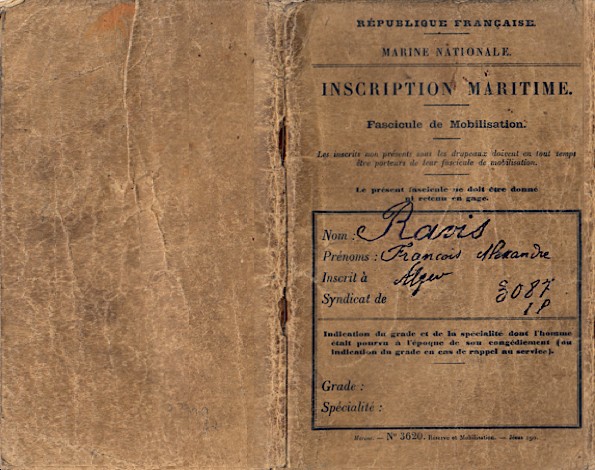 RÉPUBLIQUE FRANÇAISE.
MARINE NATIONALE.
INSCRIPTION MARITIME.
Fascicule de Mobilisation.
Les inscrits non présents sous les drapeaux doivent en tout temps
être porteurs de leur fascicule de mobilisation.
Le présent fascicule ne doit être donné
ni retenu en gage.
Nom : Ravis
Prénoms : François Alexandre
Inscrit à Alger
Syndicat de 8087
IP
Indication du grade et de la spécialité dont l'homme
était pourvu à l'époque de son congédiement (ou
indication du grade en cas de rappel au service).
Grade :
Spécialité :
Nº 3620. Réserve et Mobilisation.